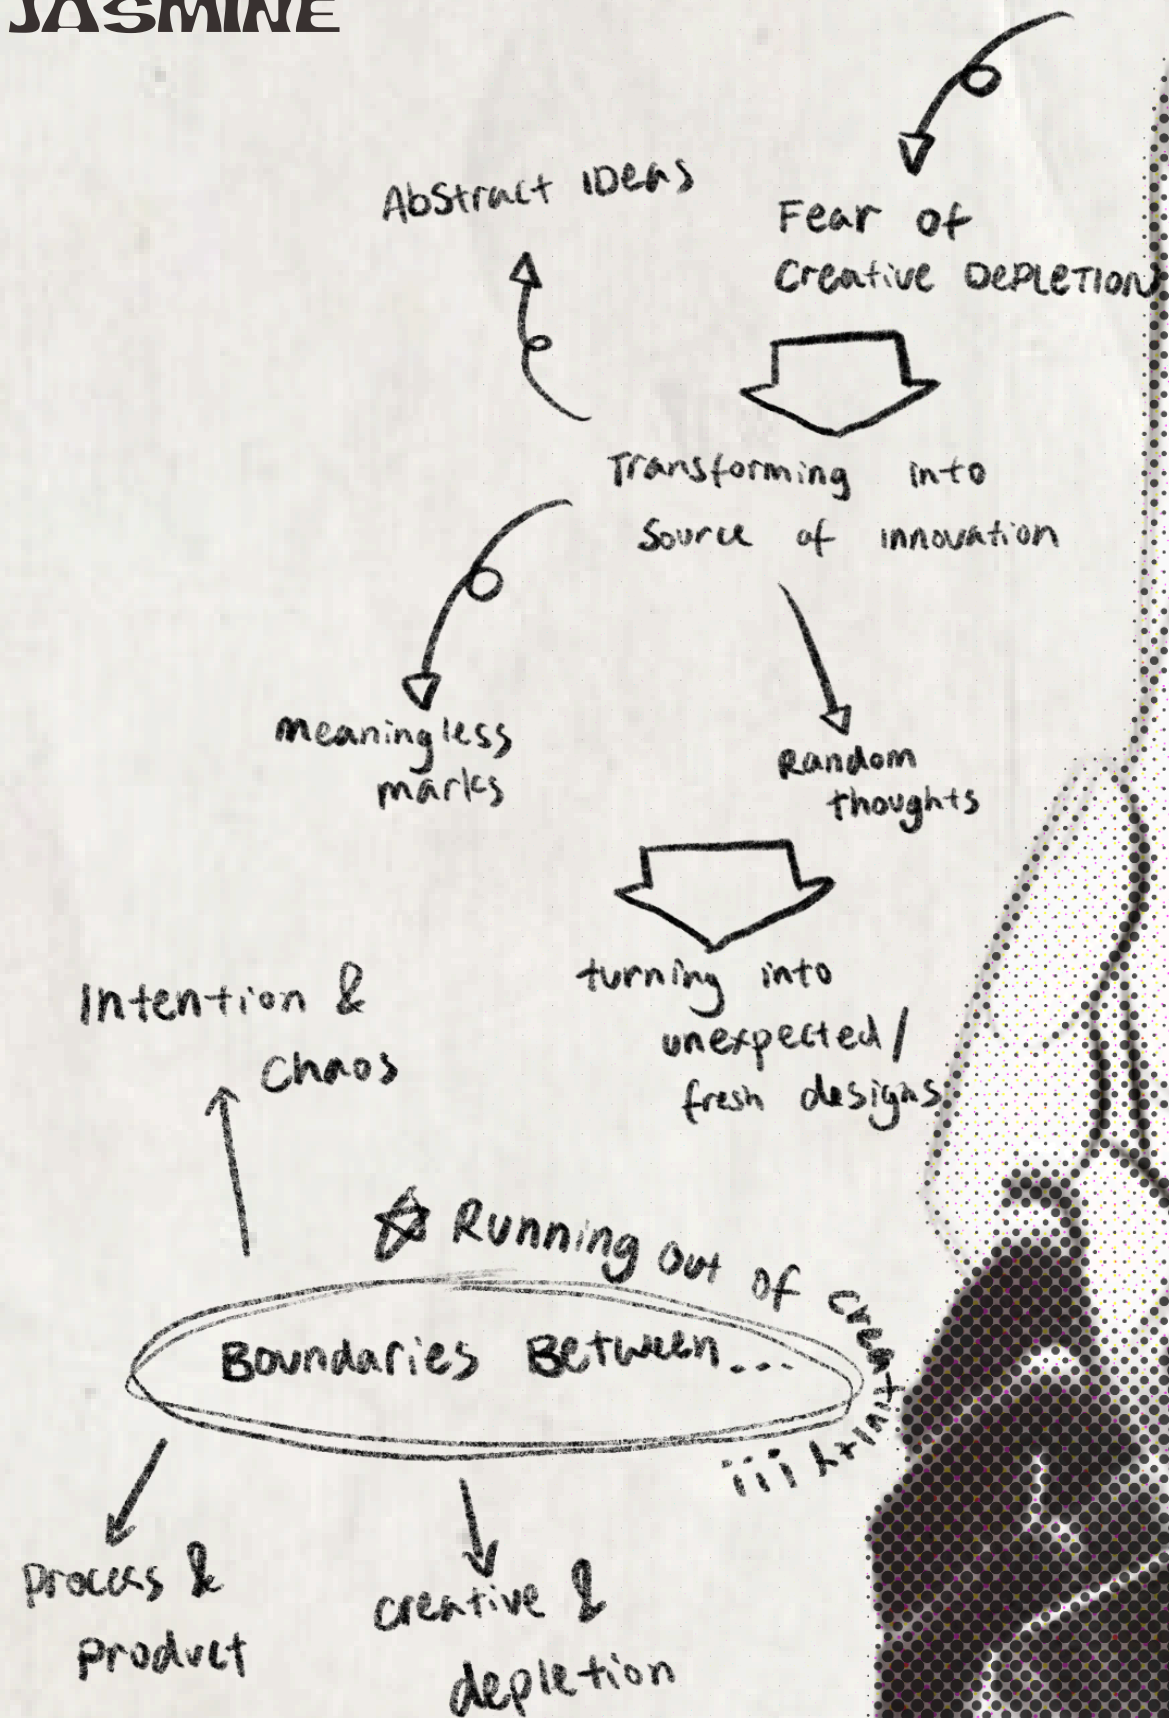 JASMINE
Abstract IDeas
Fear of
Creative DePLETION
Transforming into
Source of innovation
meaningless
marks
Random
thoughts
turning into
unexpected/
fresh designs
Intention &
Chaos
Running out of creativity!!!
Boundaries Between...
Process &
product
creative &
depletion